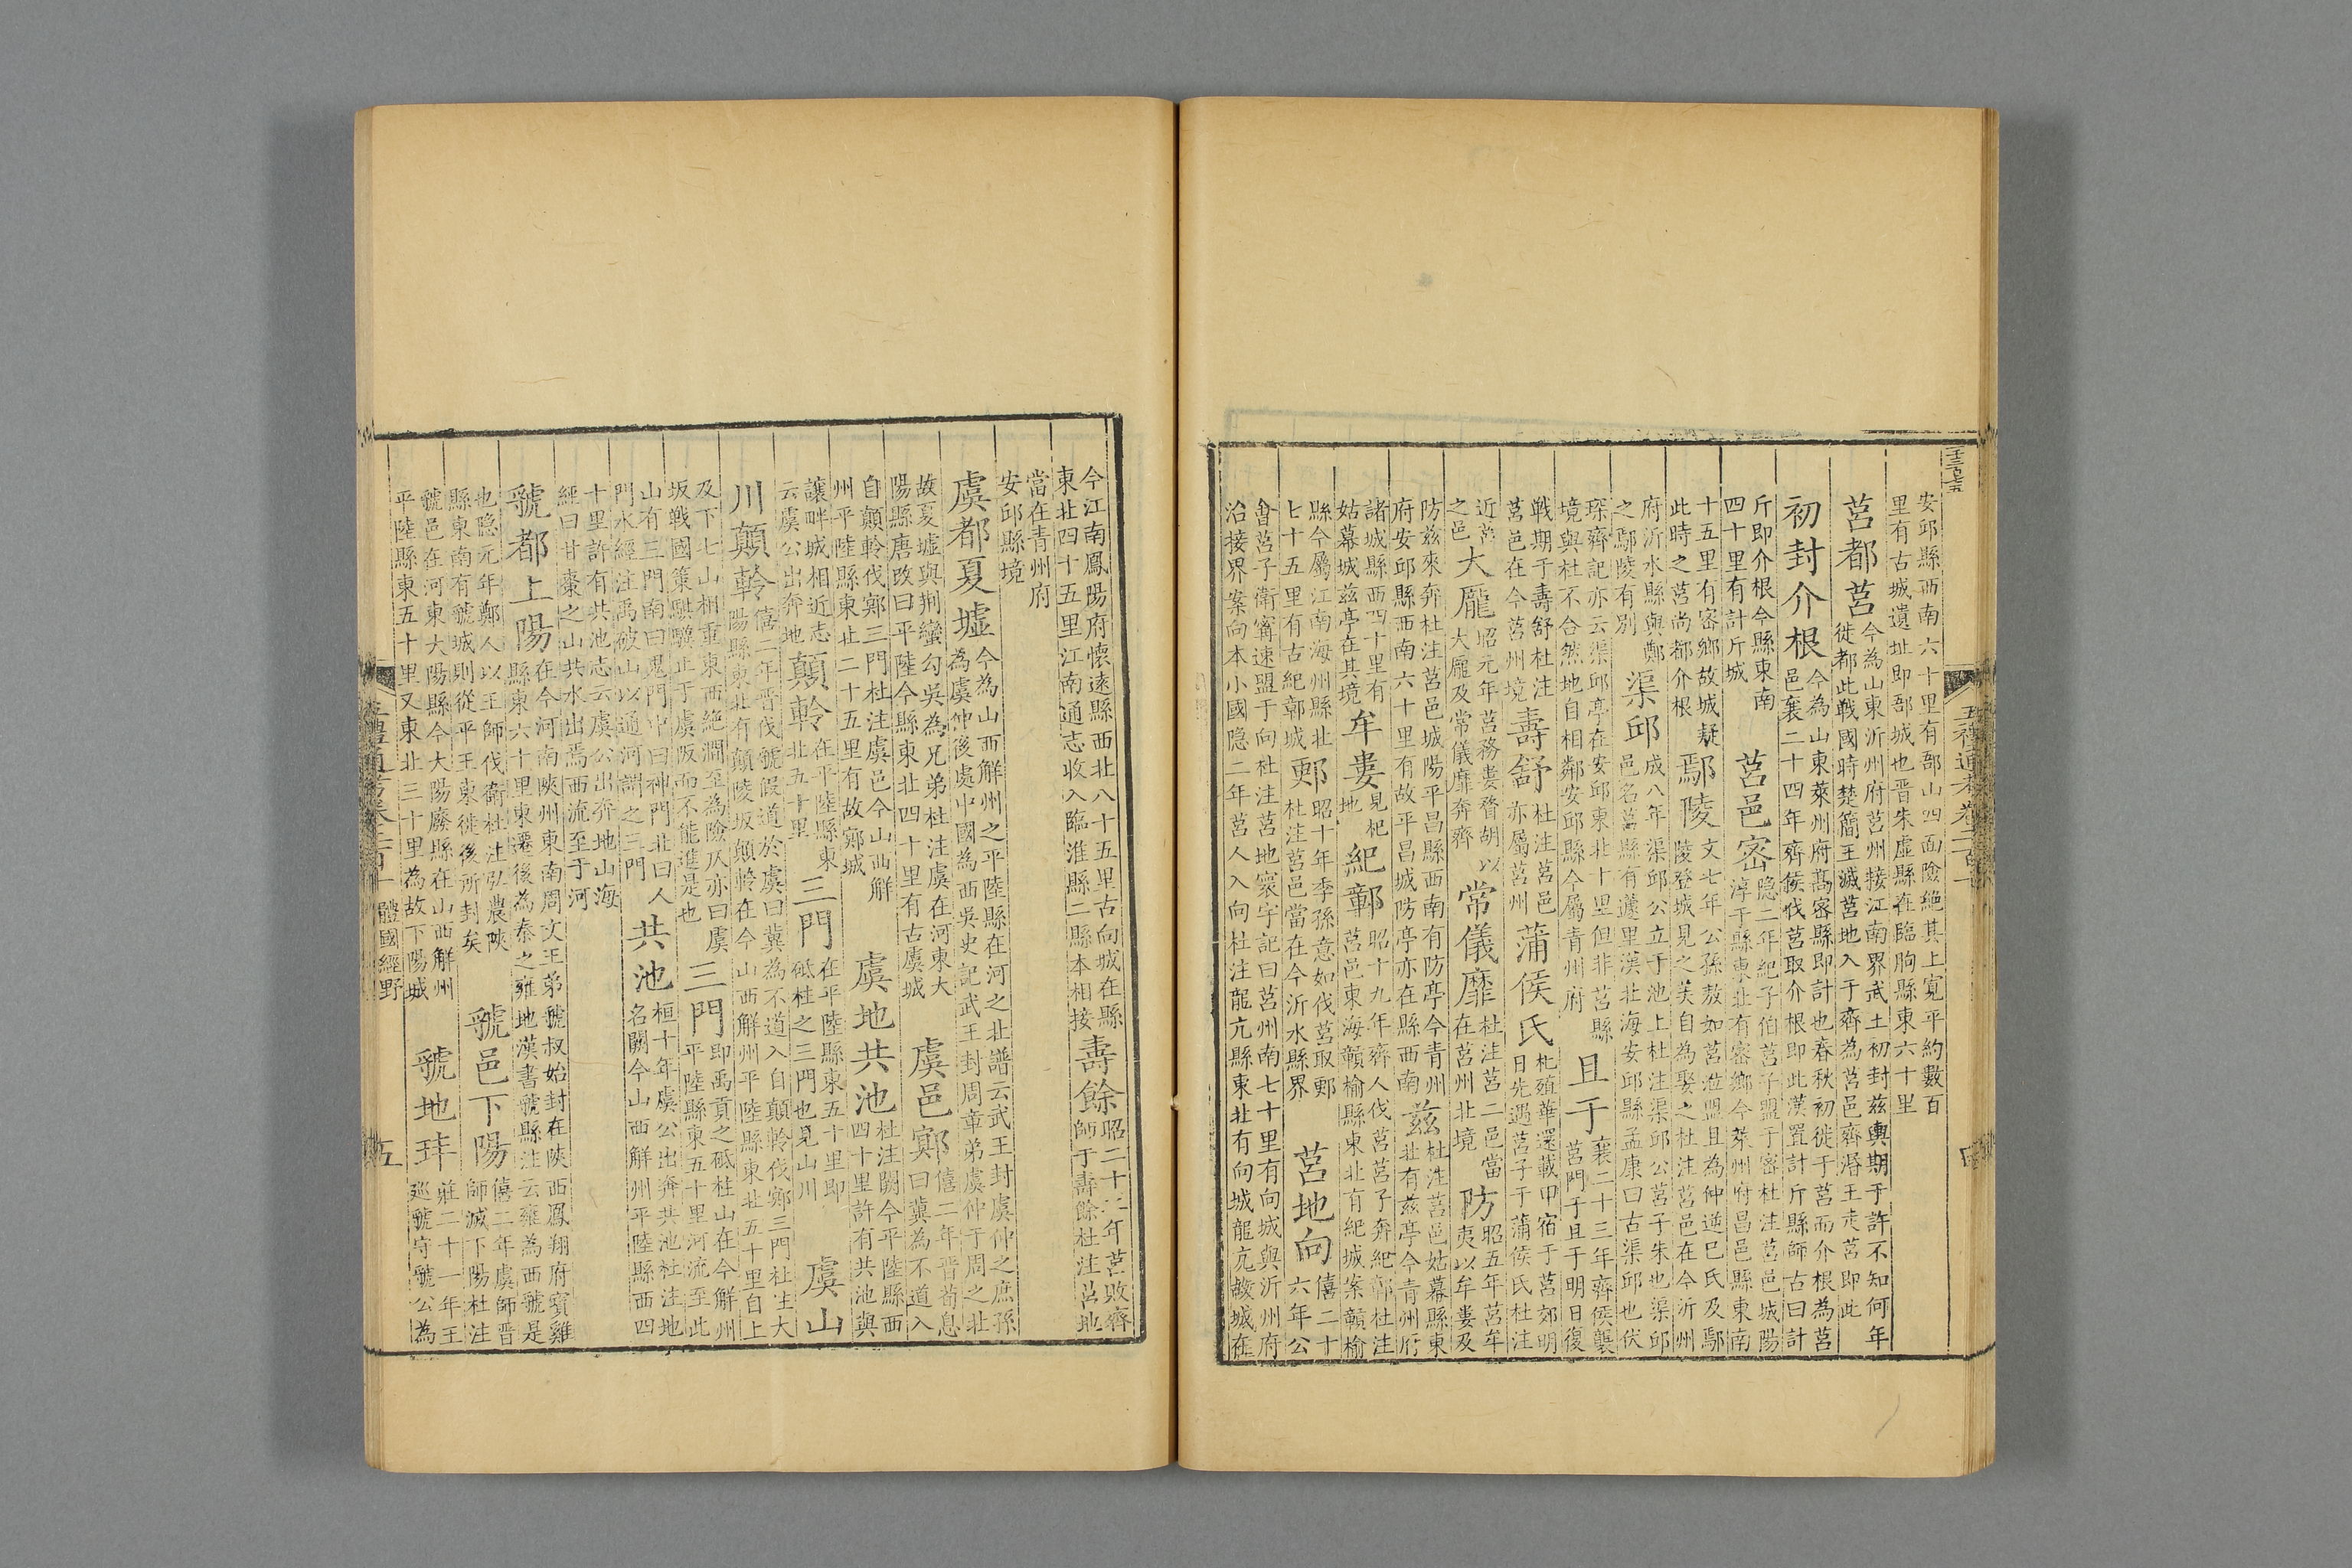 三千三百七五
五禮通考卷二百十
安邱縣西南六十里有郚山四面險絕其上寬平約數百
里有古城遺址即郚城也晉朱虛縣在臨朐縣東六十里
莒都莒今為山東沂州府莒州接江南界武王初封兹輿期于許不知何年
徙都此戰國時楚簡王滅莒地入于齊為莒邑齊湣王走莒即此
初封介根今為山東萊州府高密縣即計也春秋初徙于莒而介根為莒
邑襄二十四年齊侯伐莒取介根即此漢置計斤縣師古曰計
斤即介根今縣東南
四十里有計斤城
莒邑密隱二年紀子伯莒子盟于密杜注莒邑城陽
淳于縣東北有密鄉今萊州府昌邑縣東南
十五里有密鄉故城疑
此時之莒尚都介根
鄢陵文七年公孫敖如莒涖盟且為仲逆巳氏及鄢
陵登城見之美自為娶之杜注莒邑在今沂州
府沂水縣與鄭
之鄢陵有別
渠邱成八年渠邱公立于池上杜注渠邱公莒子朱也渠邱
邑名莒縣有蘧里漢北海安邱縣孟康曰古渠邱也伏
琛齊記亦云渠邱亭在安邱東北十里但非莒縣
境與杜不合然地自相鄰安邱縣今屬青州府
且于襄二十三年齊侯襲
莒門于且于明日復
戰期于壽舒杜注
莒邑在今莒州境
壽舒杜注莒邑
亦屬莒州
蒲侯氏杞殖華還載甲宿于莒郊明
日先遇莒子于蒲侯氏杜注
近莒
之邑
大厖昭元年莒務婁瞀胡以
大厖及常儀靡奔齊
常儀靡杜注莒二邑當
在莒州北境
防昭五年莒牟
夷以牟婁及
防兹來奔杜注莒邑城陽平昌縣西南有防亭今青州
府安邱縣西南六十里有故平昌城防亭亦在縣西南
兹杜注莒邑姑幕縣東
北有兹亭今青州府
諸城縣西四十里有
姑幕城兹亭在其境
牟婁見杞
地
紀鄣昭十九年齊人伐莒莒子奔紀鄣杜注
莒邑東海贛榆縣東北有紀城案贛榆
縣今屬江南海州縣北
七十五里有古紀鄣城
郠昭十年季孫意如伐莒取郠
杜注莒邑當在今沂水縣界
莒地向僖二十
六年公
會莒子衛甯速盟于向杜注莒地寰宇記曰莒州南七十里有向城與沂州府
治接界案向本小國隱二年莒人入向杜注龍亢縣東北有向城龍亢故城在
今江南鳳陽府懷遠縣西北八十五里古向城在縣
東北四十五里江南通志收入臨淮縣二縣本相接
壽餘昭二十二年莒敗齊
師于壽餘杜注莒地
當在青州府
安邱縣境
虞都夏墟今為山西解州之平陸縣在河之北譜云武王封虞仲之庶孫
為虞仲後處中國為西吳史記武王封周章弟虞仲于周之北
故夏墟與荆蠻勾吳為兄弟杜注虞在河東大
陽縣唐改曰平陸今縣東北四十里有古虞城
虞邑鄍僖二年晉荀息
曰冀為不道入
自顛軨伐鄍三門杜注虞邑今山西解
州平陸縣東北二十五里有故鄍城
虞地共池杜注闕今平陸縣西
四十里許有共池與
讓畔城相近志
云虞公出奔地
顛軨在平陸縣東
北五十里
三門在平陸縣東五十里即
砥柱之三門也見山川
虞山
川顛軨僖二年晉伐虢假道於虞曰冀為不道入自顛軨伐鄍三門杜注大
陽縣東北有顛陵坂顛軨在今山西解州平陸縣東北五十里自上
及下七山相重東西絕澗至為險仄亦曰虞
坂戰國策騏驥止于虞阪而不能進是也
三門即禹貢之砥柱山在今解州
平陸縣東五十里河流至此
山有三門南曰鬼門中曰神門北曰人
門水經注禹破山以通河謂之三門
共池桓十年虞公出奔共池杜注地
名闕今山西解州平陸縣西四
十里許有共池志云虞公出奔地山海
經曰甘棗之山共水出焉西流至于河
虢都上陽在今河南陝州東南周文王弟虢叔始封在陝西鳳翔府寶雞
縣東六十里東遷後為秦之雍地漢書虢縣注云雍為西虢是
也隱元年鄭人以王師伐衛杜注弘農陝
縣東南有虢城則從平王東徙後所封矣
虢邑下陽僖二年虞師晉
師滅下陽杜注
虢邑在河東大陽縣今大陽廢縣在山西解州
平陸縣東五十里又東北三十里為故下陽城
虢地玤莊二十一年王
巡虢守虢公為
五禮通考卷二百十一體國經野
五